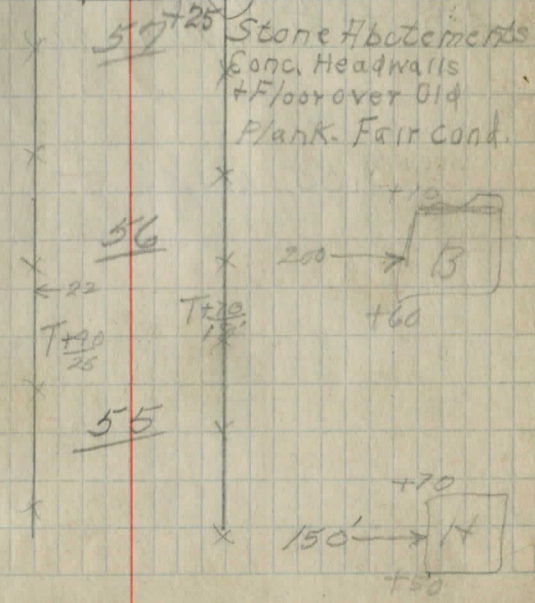 57 +25 Stone Abotements
Conc. Headwalls
+ Floor over Old
Plank. Fair Cond.
+10
56
200 B
22
T+70
+60
T+90
25
55
+70
150' H
+50